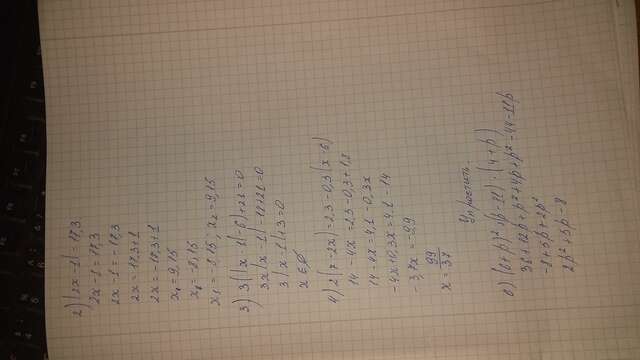 2) |2x-1| = 17,3
2x-1 = 17,3
2x-1 = -17,3
2x = 17,3+1
2x = -17,3+1
x₁ = 9,15
x₂ = -8,15
x₁ = -8,15; x₂ = 9,15
3) 3(|x-1|-6)+21=0
3|x-1|-18+21=0
3|x-1|+3=0
x ∈ ∅
4) 2(7-2x)=2,3-0,3(x-6)
14-4x=2,3-0,3+1,8
14-4x=4,1-0,3x
-4x+0,3x=4,1-14
-3,7x=-9,9
x=99/37
Упростить.
в) (6+p)²-(p-11)·(4+p)
36+12p+p²+4p+p²-44-11p
-8+5p+2p²
2p²+5p-8